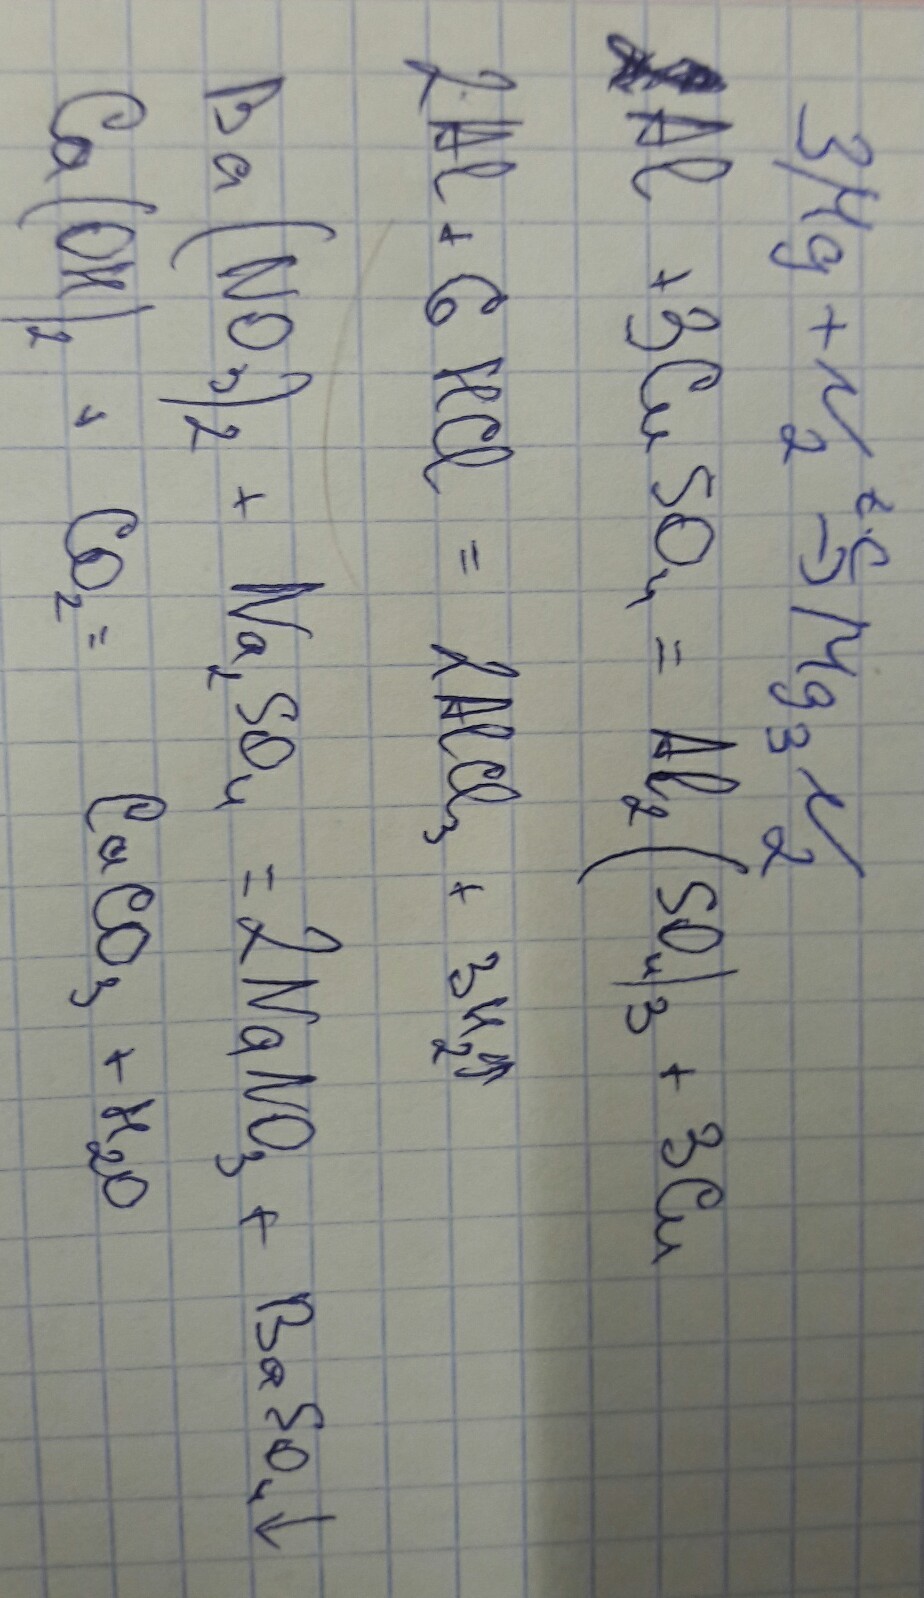 3Mg + N₂ →t°C Mg₃N₂
Al + 3CuSO₄ = Al₂(SO₄)₃ + 3Cu
2Al + 6HCl = 2AlCl₃ + 3H₂↑
Ba(NO₃)₂ + Na₂SO₄ = 2NaNO₃ + BaSO₄↓
Ca(OH)₂ + CO₂ = CaCO₃ + H₂O